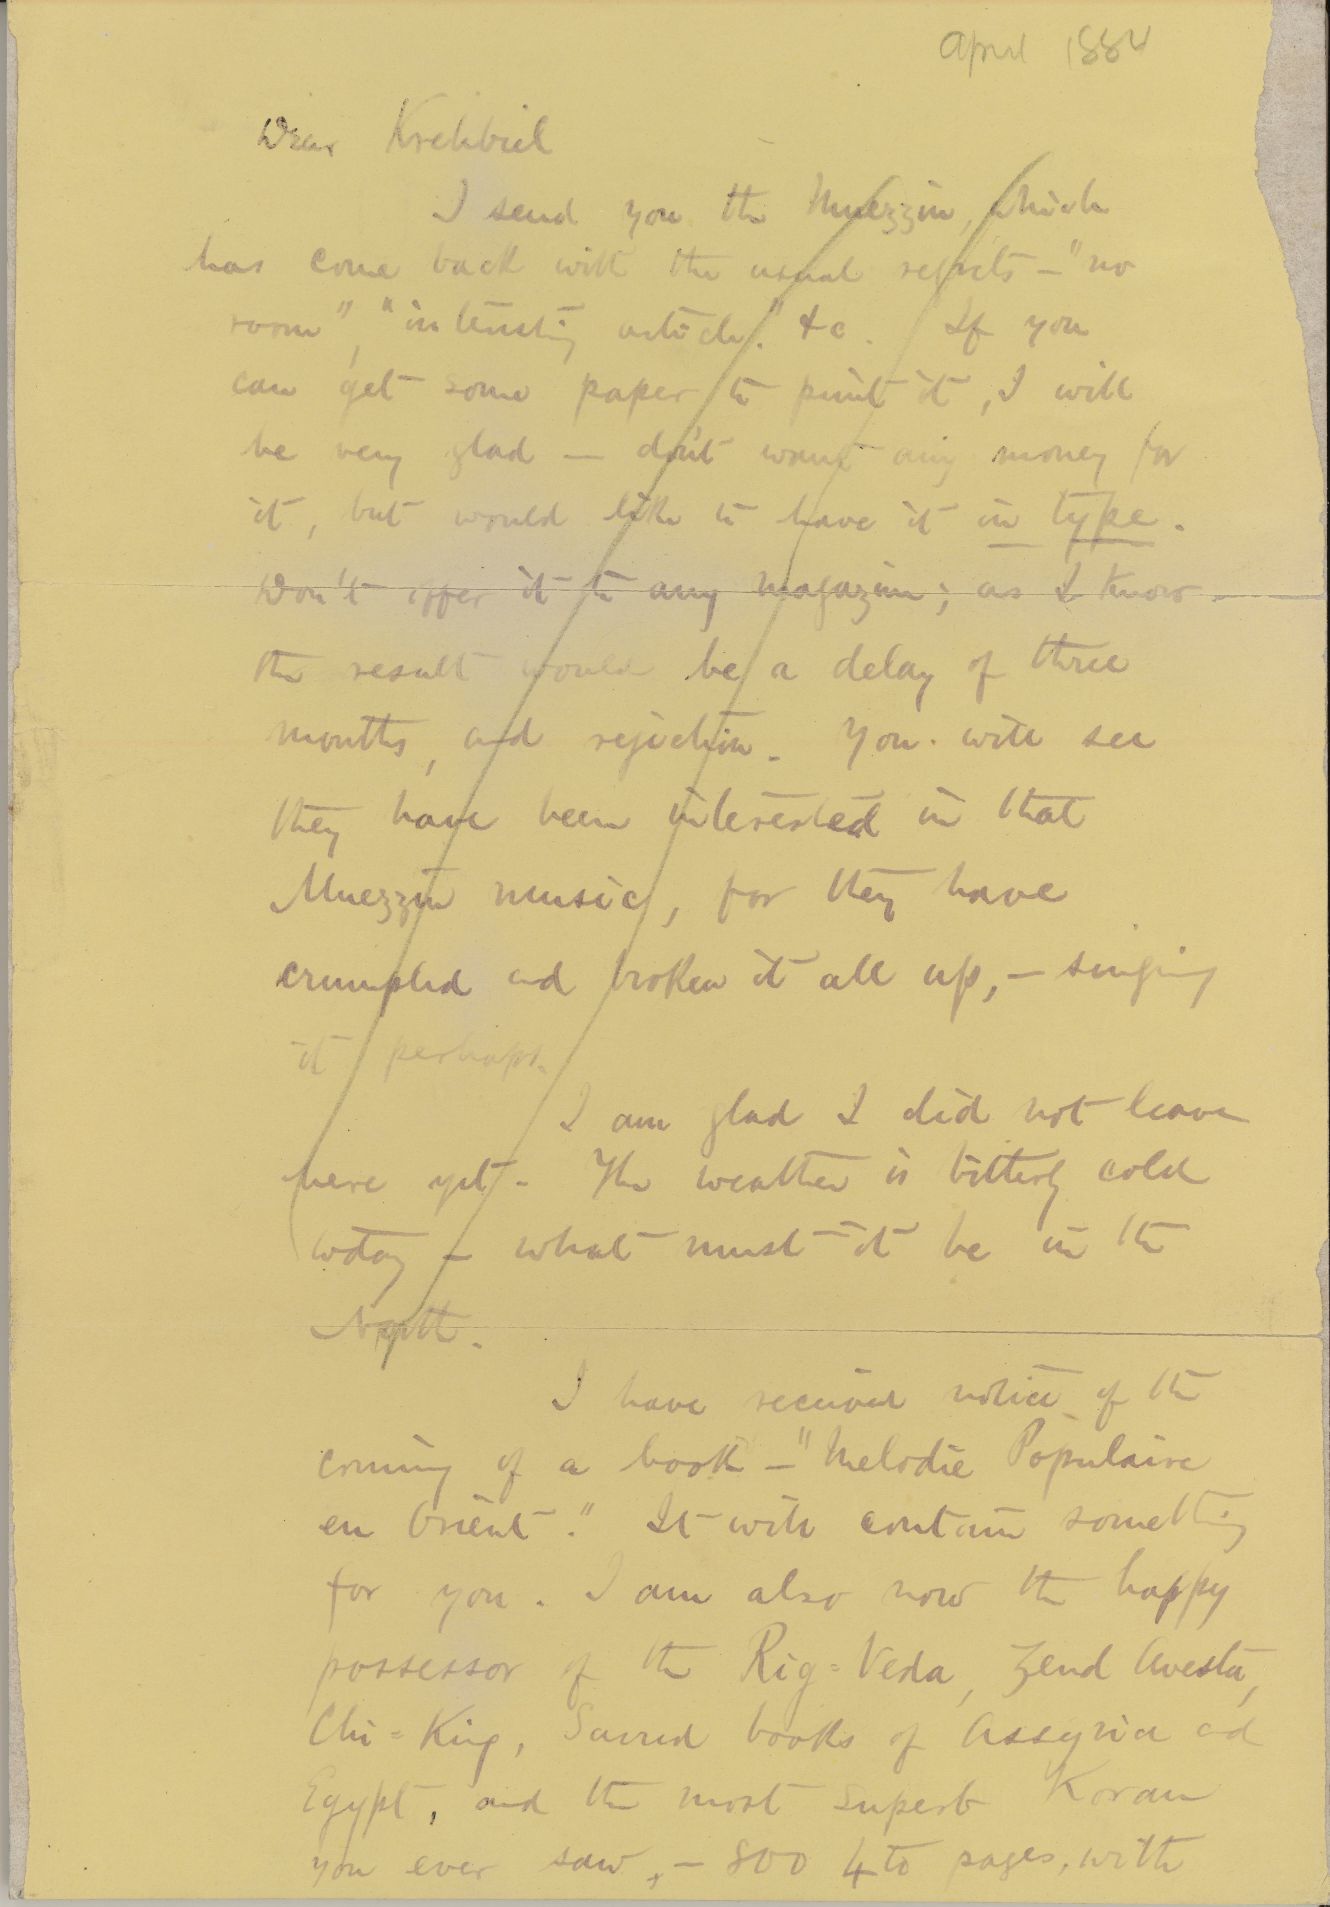 April 1884
Dear Krehbiel
I send you the Muezzin, which
has come back with the usual regrets — "no
room", "interesting article." &c. If you
can get some paper to print it, I will
be very glad — don't want any money for
it, but would like to have it in type.
Don't offer it to any magazine; as I know
the result would be a delay of three
months, and rejection. You will see
they have been interested in that
Muezzin music, for they have
crumpled and broken it all up, — singing
it perhaps.
I am glad I did not leave
here yet. The weather is bitterly cold
today — what must it be in the
North.
I have received notice of the
coming of a book — "Melodie Populaire
en Orient." It will contain something
for you. I am also now the happy
possessor of the Rig=Veda, Zend Avesta,
Chi=King, Sacred books of Assyria and
Egypt, and the most superb Koran
you ever saw, — 800 4to pages, with